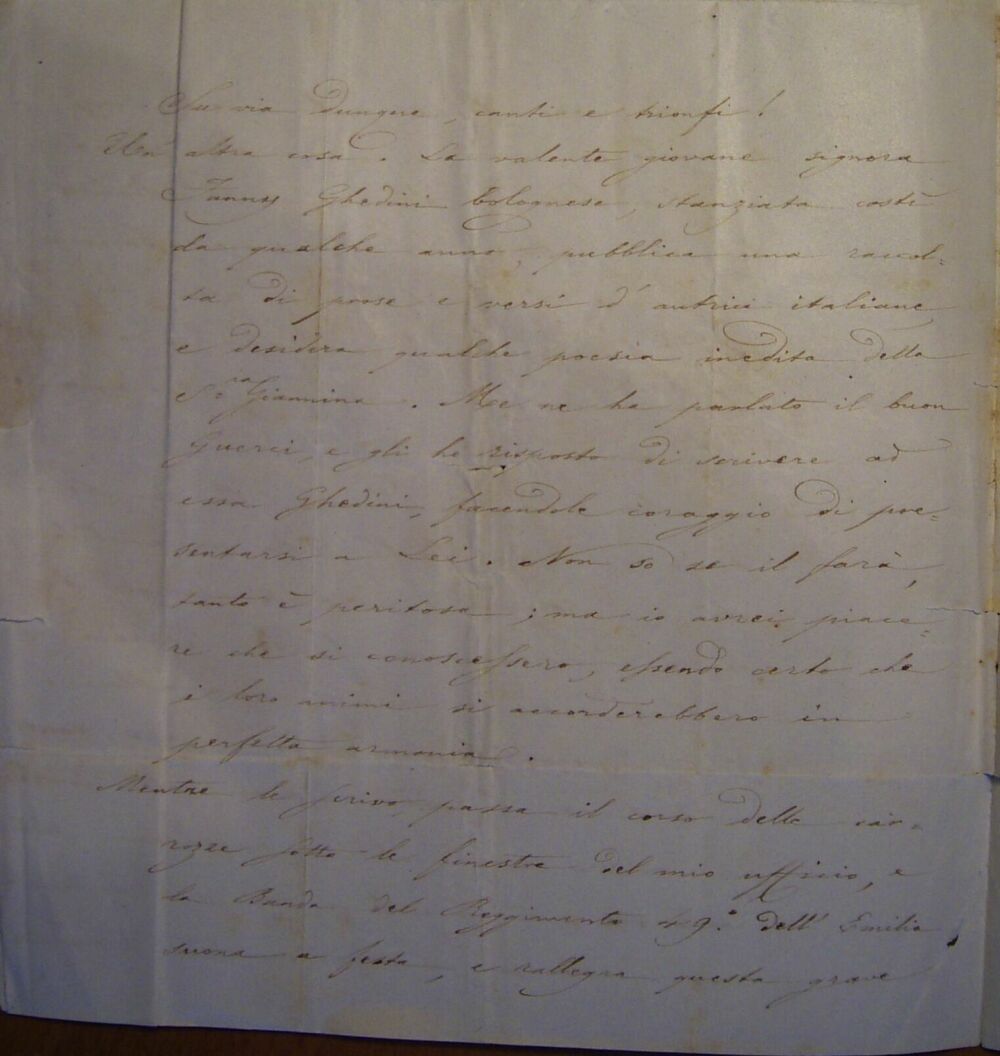 Su via dunque, canti e trionfi!
Un' altra cosa. La valente giovane signora
Fanny Ghedini bolognese, stanziata costì
da qualche anno, pubblica una raccol=
ta di prose e versi d'autrici italiane,
e desidera qualche poesia inedita della
S.ra Giannina. Me ne ha parlato il buon
Guerci, e gli ho risposto di scrivere ad
essa Ghedini, facendole coraggio di pre=
sentarsi a Lei. Non so se il farà,
tanto è peritosa; ma io avrei piace=
re che si conoscessero, essendo certo che
i loro animi si accorderebbero in
perfetta armonia.
Mentre le scrivo, passa il corso delle car=
rozze sotto le finestre del mio ufficio, e
la Banda del Reggimento 49.° dell' Emilia
suona a festa, e rallegra questa grave